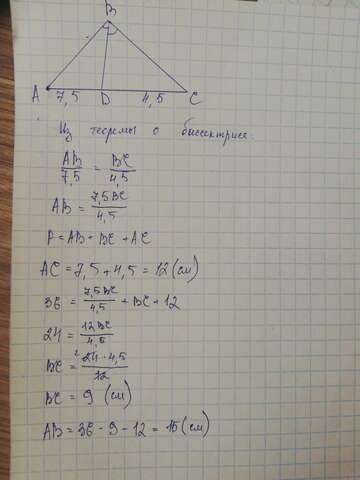 B
A 7,5 D 4,5 C
Из теоремы о биссектрисе:
AB/7,5 = BC/4,5
AB = 7,5BC/4,5
P = AB + BC + AC
AC = 7,5 + 4,5 = 12 (см)
36 = 7,5BC/4,5 + BC + 12
24 = 12BC/4,5
BC = 24 · 4,5/12
BC = 9 (см)
AB = 36 - 9 - 12 = 15 (см)